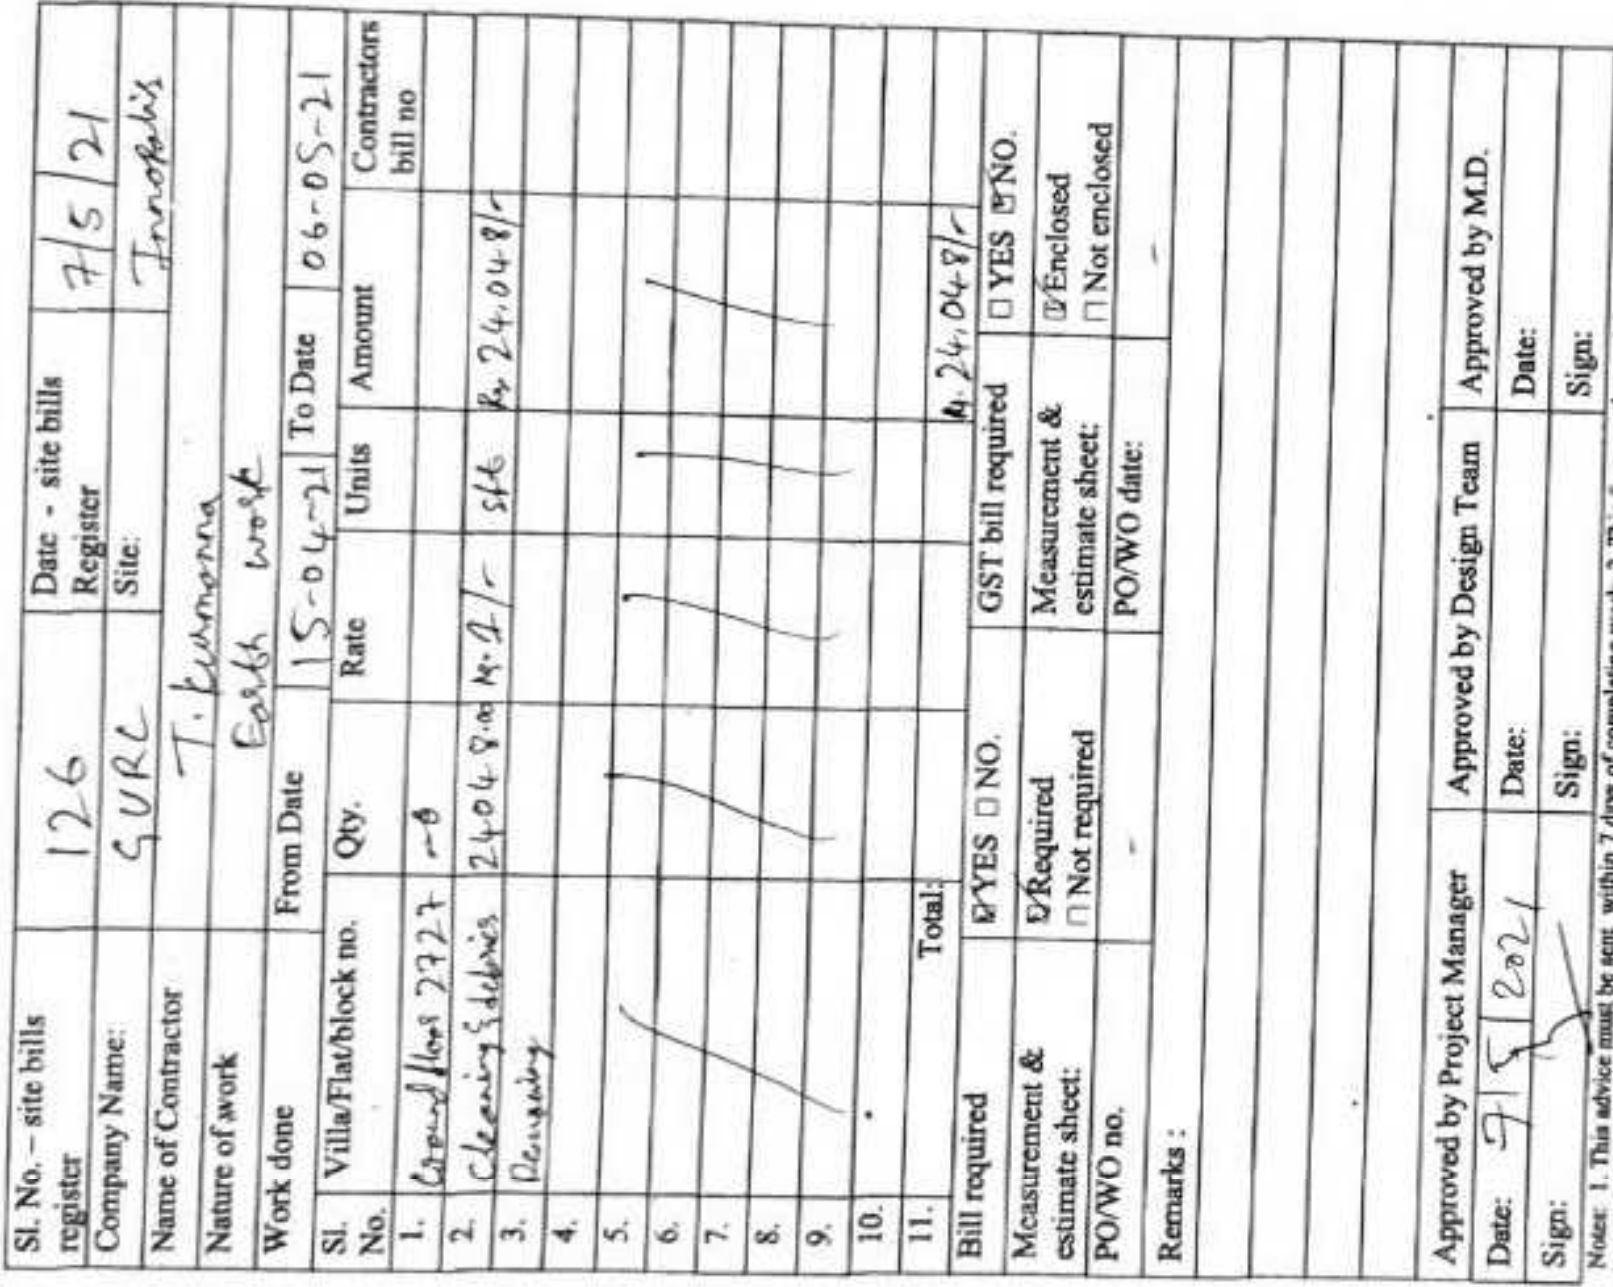 Sl. No. – site bills register 126 Date - site bills Register 7/5/21
Company Name: GVRC Site: Innopolis
Name of Contractor T. Kurmanna
Nature of work Earth work
Work done From Date 15-04-21 To Date 06-05-21
Sl. No. Villa/Flat/block no. Qty. Rate Units Amount Contractors bill no
1. Ground floor 2727
2. Cleaning & debries 24048.00 Rs. 1/- sft Rs. 24,048/-
3. Removing
4.
5.
6.
7.
8.
9.
10.
11. Total: Rs. 24,048/-
Bill required ☑ YES ☐ NO. GST bill required ☐ YES ☑ NO.
Measurement & estimate sheet: ☑ Required ☐ Not required Measurement & estimate sheet: ☑ Enclosed ☐ Not enclosed
PO/WO no. - PO/WO date: -
Remarks :
Approved by Project Manager Approved by Design Team Approved by M.D.
Date: 7/5/2021 Date: Date:
Sign: Sign: Sign:
Notes: 1. This advice must be sent within 7 days of completing